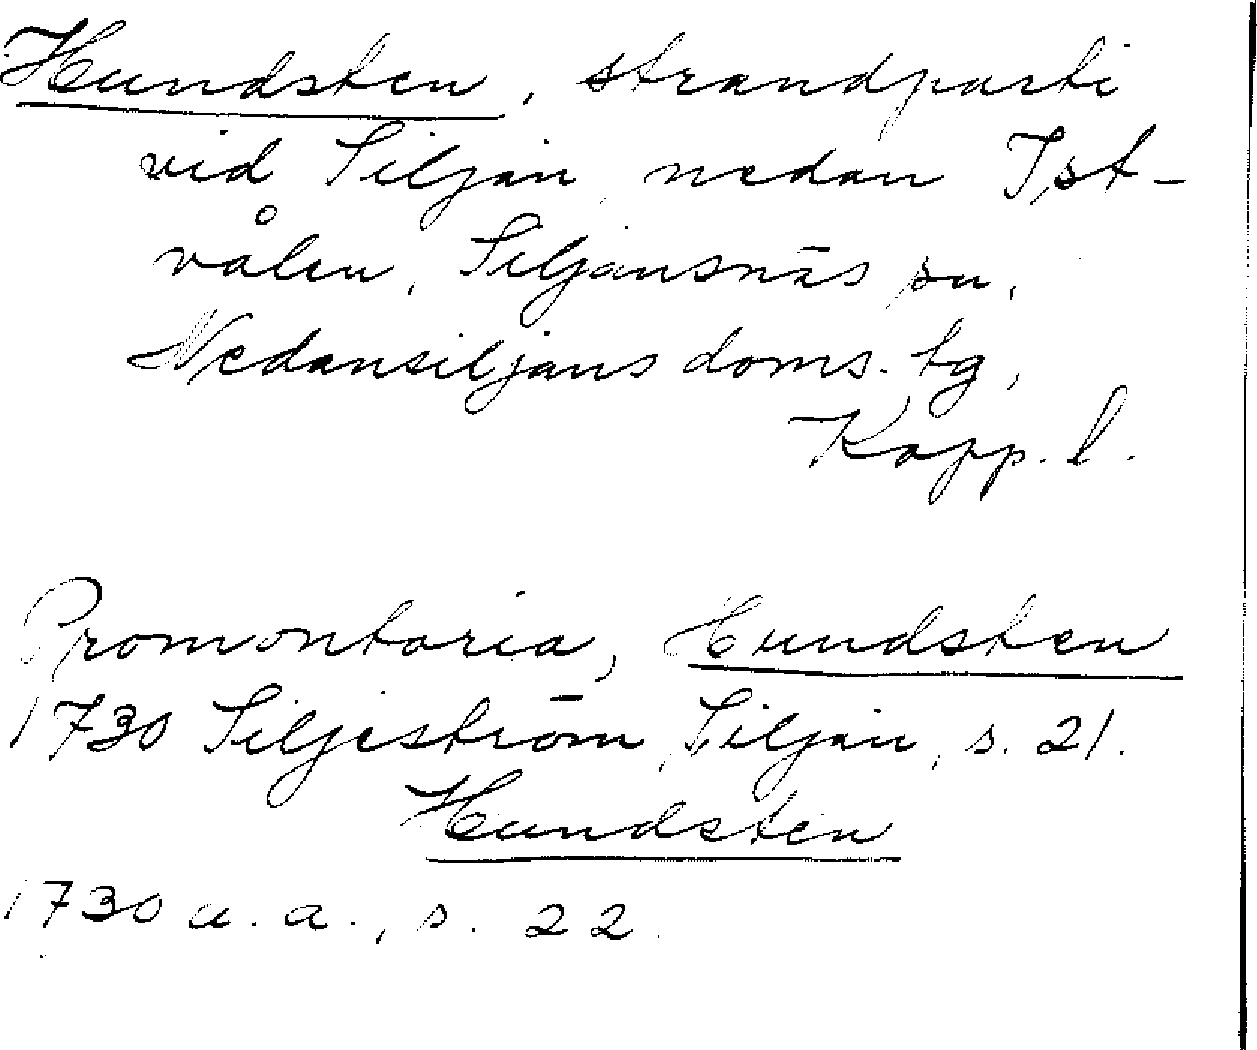 Hundsten, strandparti
vid Siljan nedan Ist-
vålen, Siljansnäs sn,
Nedansiljans doms. tg,
Kopp. l.
Promontoria, Hundsten
1730 Siljeström, Siljan, s. 21.
Hundsten
1730 a. a., s. 22.